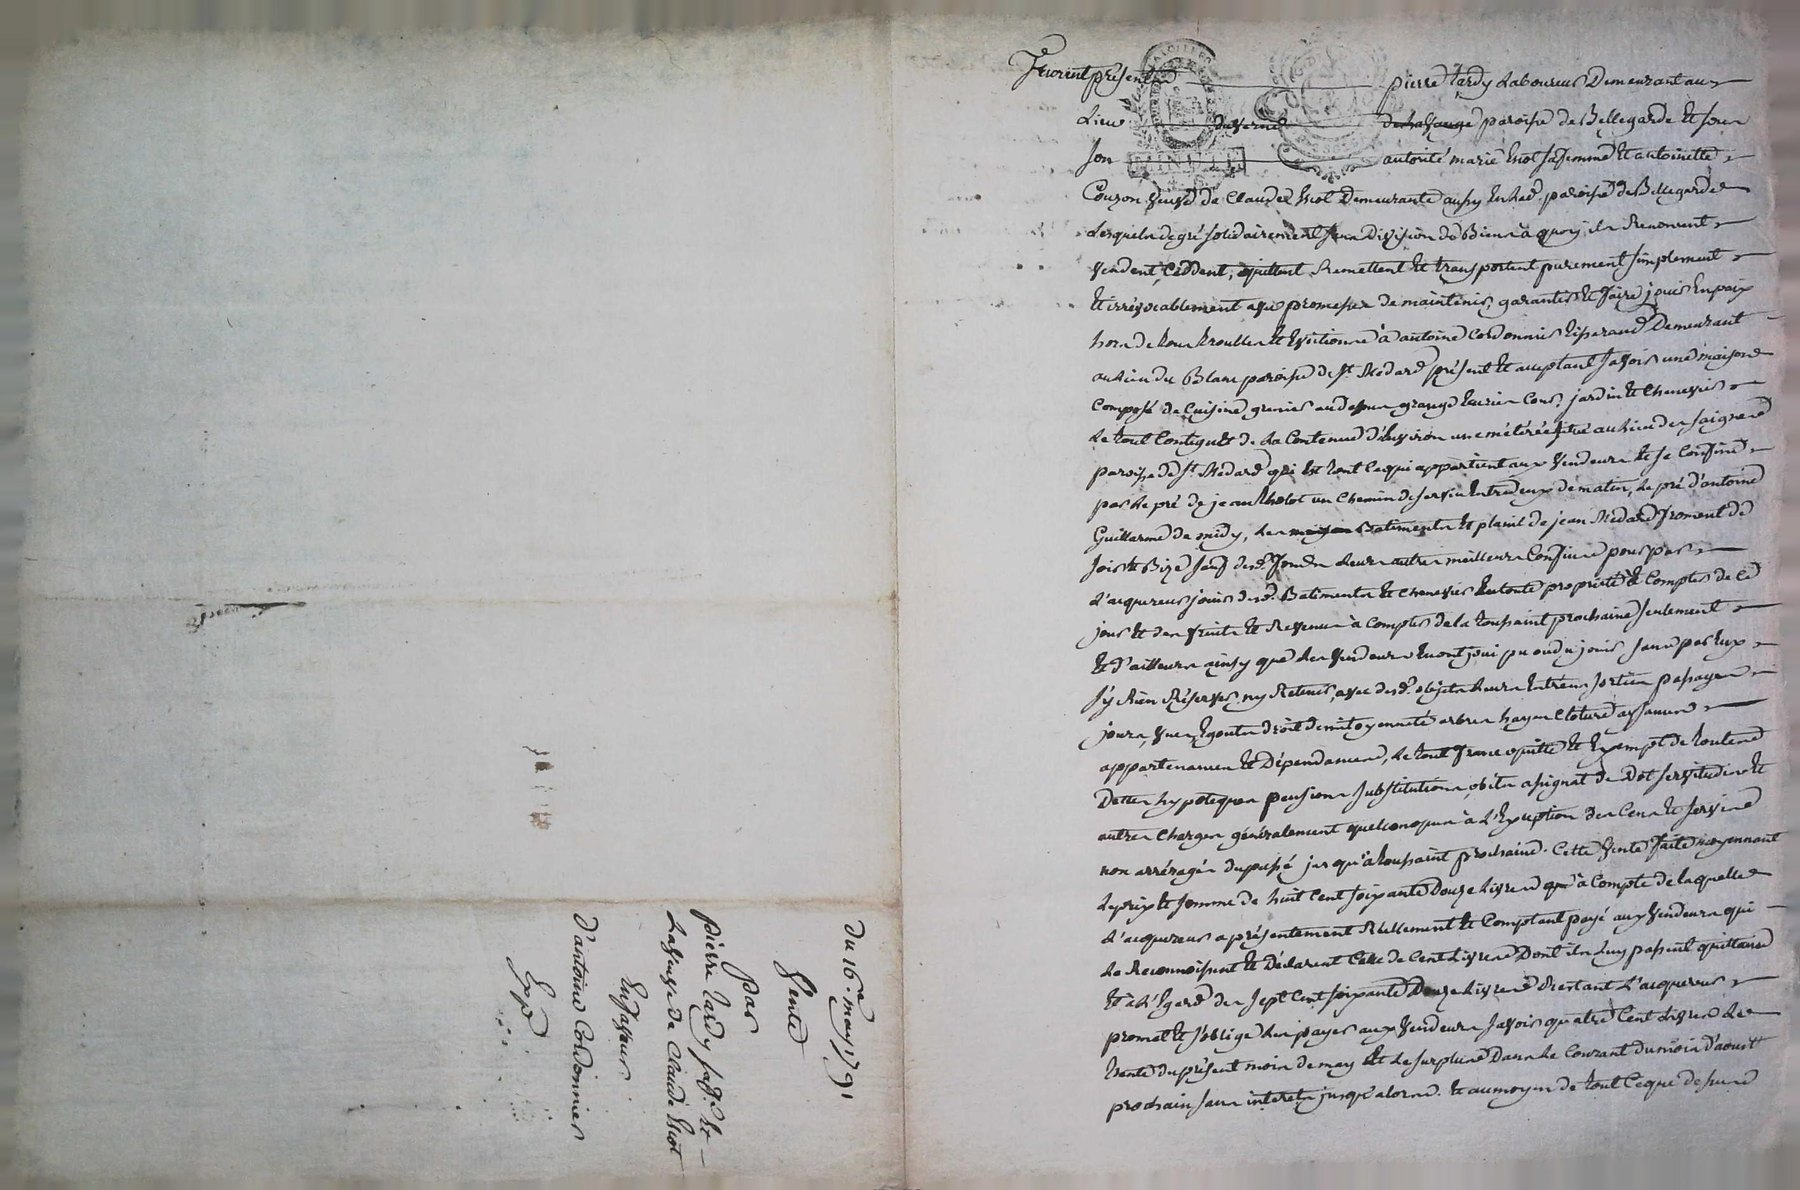 Furent présents pierre tardy Laboureur Demeurant au
Lieu paroisse de Bellegarde et sous
son autorité marie sa femme et antoinette
Couzon veuve de Claude Demeurante aussy paroisse de Bellegarde
Lesquels de gré solidairement sans Division de Biens à quoy ils Renoncent
vendent, Ceddent, quittent Remettent et transportent purement simplement
et irrévocablement avec promesse de maintenir, garantir et faire jouir en paix
hors de tous troubles et évictions à antoine Cordonnier Demeurant
au Lieu du Blanc paroisse de St. Médard présent et acceptant savoir une maison
Composé de Cuisine grenier au dessus grange écurie Cour, jardin et Chenevier
Le tout Contigus de La Contenue d'environ une métérée situé au Lieu des
paroisse de St. Médard qui est tout Ce qui appartient aux vendeurs et se Confine
par Le pré de jean un Chemin de service entre deux de matin, Le pré d'antoine
Guillarme de midy, Les Batiments et de jean Médard froment de
soir et Bize sauf desd. fonds Leurs autres meilleurs Confins pour par
L'acquereur jouir desd. Batiments et Chenevier en toute propriété à Compter de Ce
jour et des fruits et Revenus à Compter de la toussaint prochaine seulement
et d'ailleurs ainsy que Les vendeurs en ont joui pu ou dû jouir sans par eux
s'y Rien Réserver, ny Retenir, avec desd. objets Leurs entrées, sorties passages
jours, vues, égouts droit de mitoyenneté arbres hayes Cloture aisances
appartenances et Dépendances, Le tout franc quitte et Exempt de toutes
Dettes hypoteques pensions substitutions, obits assignat de Dot servitudes et
autres Charges généralement quelconques à L'Exception des Cens et servis
non arréragés du passé jusqu'à toussaint prochaine. Cette vente faite moyennant
Le prix et somme de huit Cent soixante Douze Livres à Compte de laquelle
L'acquereur a présentement Réellement et Comptant payé aux vendeurs qui
Le Reconnoissent et Déclarent Celle de Cent Livres Dont ils Luy passent quittance
et à L'Egard des sept Cent soixante Douze Livres Restant L'acquereur
promet et s'oblige Les payer aux vendeurs savoir quatre Cent Livres Le
trente du présent mois de may et Le surplus Dans Le Courant du mois d'aoust
prochain sans interets jusqu'alors. et au moyen de tout Ce que dessus
MINUTE
du 16e. may 1791
Vente
Par
Pierre Tardy sa fe. et
La veuve de Claude
En faveur
D'antoine Cordonnier
Expé